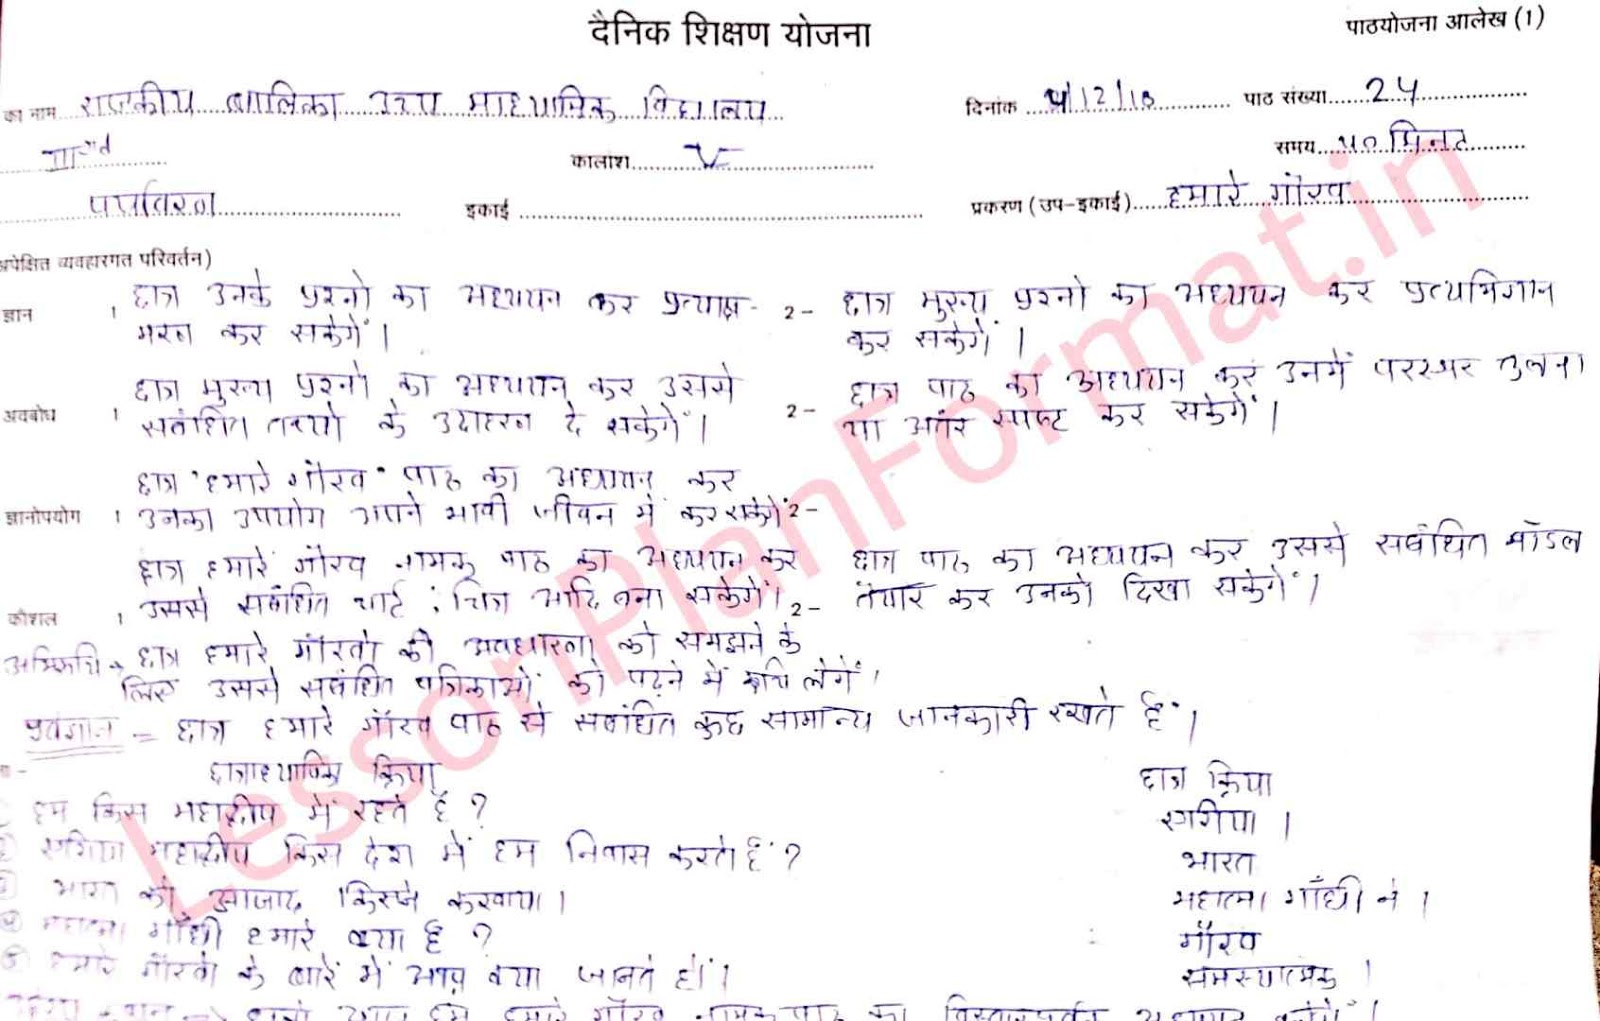 दैनिक शिक्षण योजना
पाठयोजना आलेख (1)
का नाम राजकीय बालिका उच्च माध्यमिक विद्यालय
दिनांक 4/12/18 पाठ संख्या 24
III कालांश V
समय 40 मिनट
पर्यावरण इकाई प्रकरण (उप-इकाई) हमारे गौरव
अपेक्षित व्यवहारगत परिवर्तन)
ज्ञान 1 छात्र उनके प्रश्नो का अध्ययन कर प्रत्यास्मरण कर सकेगें।
2- छात्र मुख्य प्रश्नो का अध्ययन कर प्रत्यभिज्ञान
कर सकेगें।
अवबोध 1 छात्र मुख्य प्रश्नो का अध्ययन कर उससे
सबंधित तथ्यो के उदाहरण दे सकेगें।
2- छात्र पाठ का अध्ययन कर उनमें परस्पर तुलना
या अंतर स्पष्ट कर सकेगें।
छात्र "हमारे गौरव" पाठ का अध्ययन कर
ज्ञानोपयोग 1 उनका उपयोग अपने भावी जीवन में कर सकेगें 2-
छात्र हमारे गौरव नामक पाठ का अध्ययन कर
कौशल 1 उससे सबंधित चार्ट, चित्र आदि बना सकेगें।
2- छात्र पाठ का अध्ययन कर उससे सबंधित मॉडल
तैयार कर उनको दिखा सकेगें।
अभिरूचि → छात्र हमारे गौरवो की अवधारणा को समझने के
लिए उससे सबंधित पत्रिकाओं को पढ़ने में रूचि लेगें।
पूर्वज्ञान = छात्र हमारे गौरव पाठ से सबंधित कुछ सामान्य जानकारी रखते है।
छात्राध्यापिका क्रिया छात्र क्रिया
हम किस महाद्वीप में रहते है? एशिया।
एशिया महाद्वीप किस देश में हम निवास करते है? भारत
भारत को आजाद किसने करवाया। महात्मा गाँधी ने।
④ महात्मा गाँधी हमारे क्या है? गौरव
⑤ हमारे गौरवो के बारें में आप क्या जानते हो। समस्यात्मक।
हमारे गौरव नामक पाठ का विस्तारपूर्वक अध्ययन करेगें।
LessonPlanFormat.in